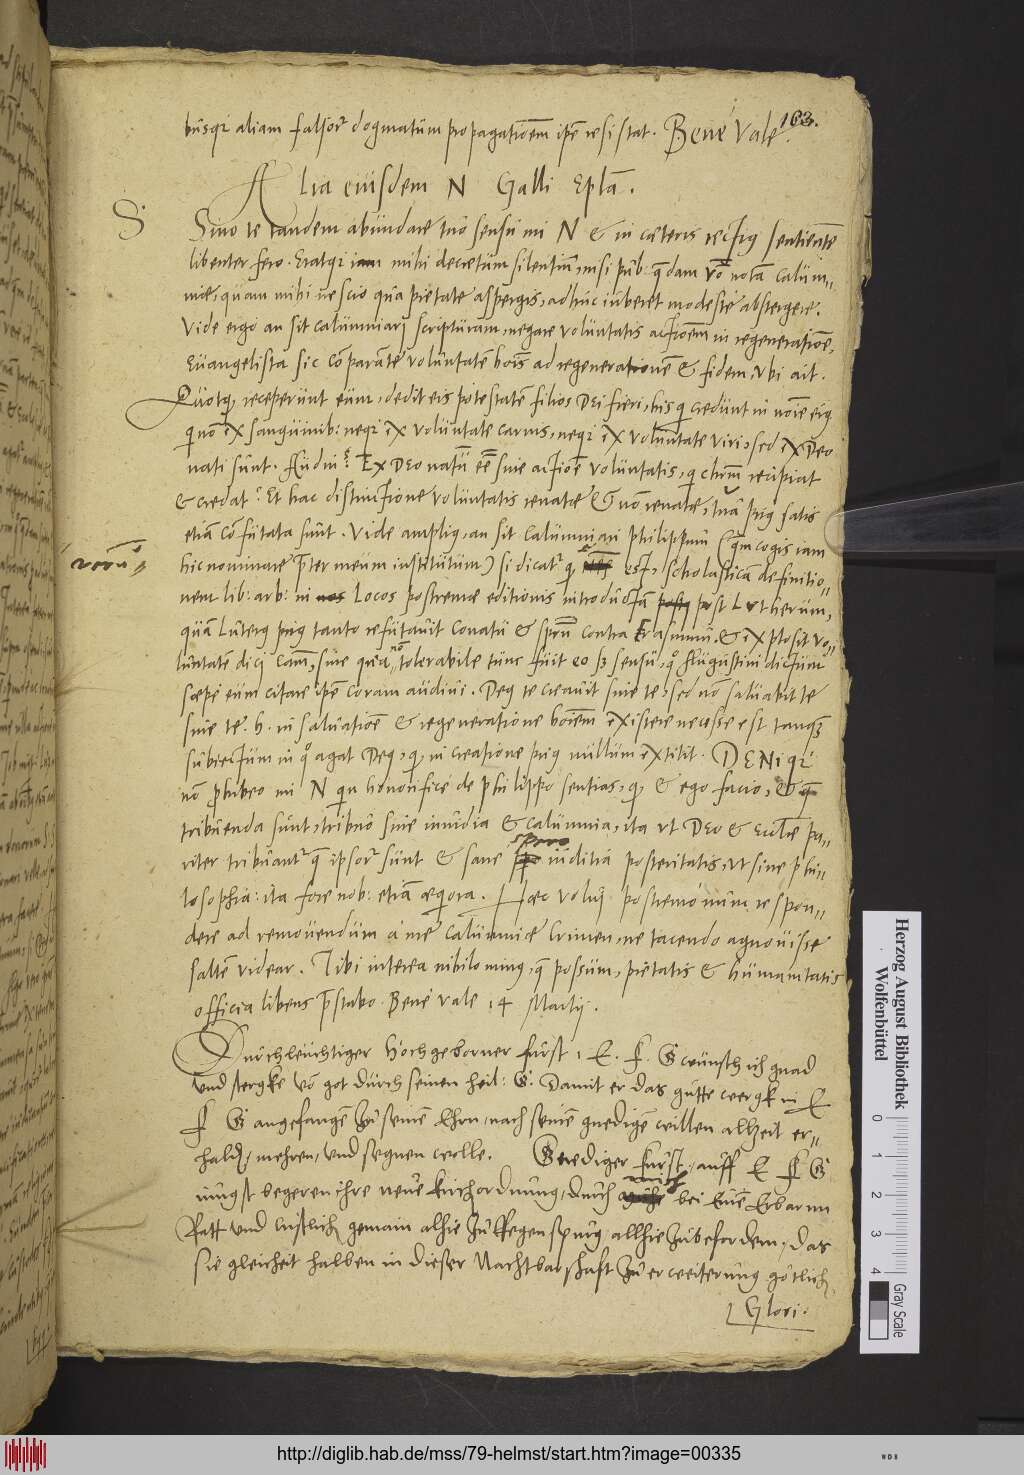 163.
busqꝫ aliam falsorꝫ dogmatum propagationem ipse resistat. Bene Vale.
Alia eiusdem N Galli Eplā.
S. Sino te tandem abundare tuo sensu mi N & in cæteris rectius sentientē
libenter fero. Eratqꝫ iam mihi decretum silentiū, nisi pub: quædam vrō nota calum„
niæ, quam mihi nescio qua pietate aspergis, adhuc iuberet modeste abstergere.
Vide ergo an sit calumniari scripturam, negare voluntatis actionem in regeneratione,
Euangelista sic comparante voluntatē hoīs ad regenerationē & fidem, vbi ait.
Quotqꝫ receperunt eum, dedit eis potestatē filios Dei fieri, his qui credunt in noīe eius
qui nō ex sanguinib: neqꝫ ex voluntate carnis, neqꝫ ex voluntate viri, sed ex Deo
nati sunt. Audin? Ex Deo natū eē sine actione voluntatis, qui chrm recipiat
& credat? Et hac distinctione voluntatis renatæ & nō renatæ, tua prius satis
etiā confutata sunt. Vide amplius, an sit calumniari Philippum (quem cogis iam
hic nominare præter meum institutum) si dicatur qꝫ est, scholasticā definitio„
nem lib: arb: in Locos postremæ editionis introductā post Lutherum,
quam Luterus prius tanto refutauit conatu & spū contra Erasmum, & explosit vo„
luntatem dicj cām, siue quia nō tolerabile tunc fuit eo sensu, quo Augustini dictum
sæpe eum citare ipse coram audiui. Deus te creauit sine te, sed nō saluabit te
sine te. h. in saluatione & regeneratione hoīem existere necesse est tanqꝫ
subiectum in quo agat Deus, qui in creatione prius nullum extitit. DENiqꝫ
nō prohibeo mi N quin honorifice de philippo sentias, qꝫ & ego facio, & quæ
tribuenda sunt, tribuo sine inuidia & calumnia, ita vt Deo & Ecclæ pa„
riter tribuantur quæ ipsorꝫ sunt & sane spero iuditia posteritatis, vt sine phi„
losophia: ita fore nob: etiā æquiora. Hæc volui postremo nunc respon„
dere ad remouendum a me calumniæ crimen, ne tacendo agnouisse
saltē videar. Tibi interea nihilominus, quæ possum, pietatis & humanitatis
officia libens præstabo. Bene vale 14 Martij.
Durchleuchtiger Hochgeborner Furst, E. F. G wünsch ich gnad
vnd stercke vō got durch seinen heil: G. Damit er das gutte werck in E
F G angefangē zu seinē Ehrn, nach seinē gnedigē willen allzeit er„
halde, mehren, vnd segnen wolle. Gnediger Furst, auff E F G
iungst begeren ihre neue kirchordnung, durch mich bei Einē Erbarnn
Ratt vnd Cristlich gemain alhie zu Regenspurg allhie zubefordern, das
sie gleicheit halben in dieser Nachtbarschafft zu erweiterung götlich
Glori.
Herzog August Bibliothek
Wolfenbüttel
0 1 2 3 4
Gray Scale
http://diglib.hab.de/mss/79-helmst/start.htm?image=00335